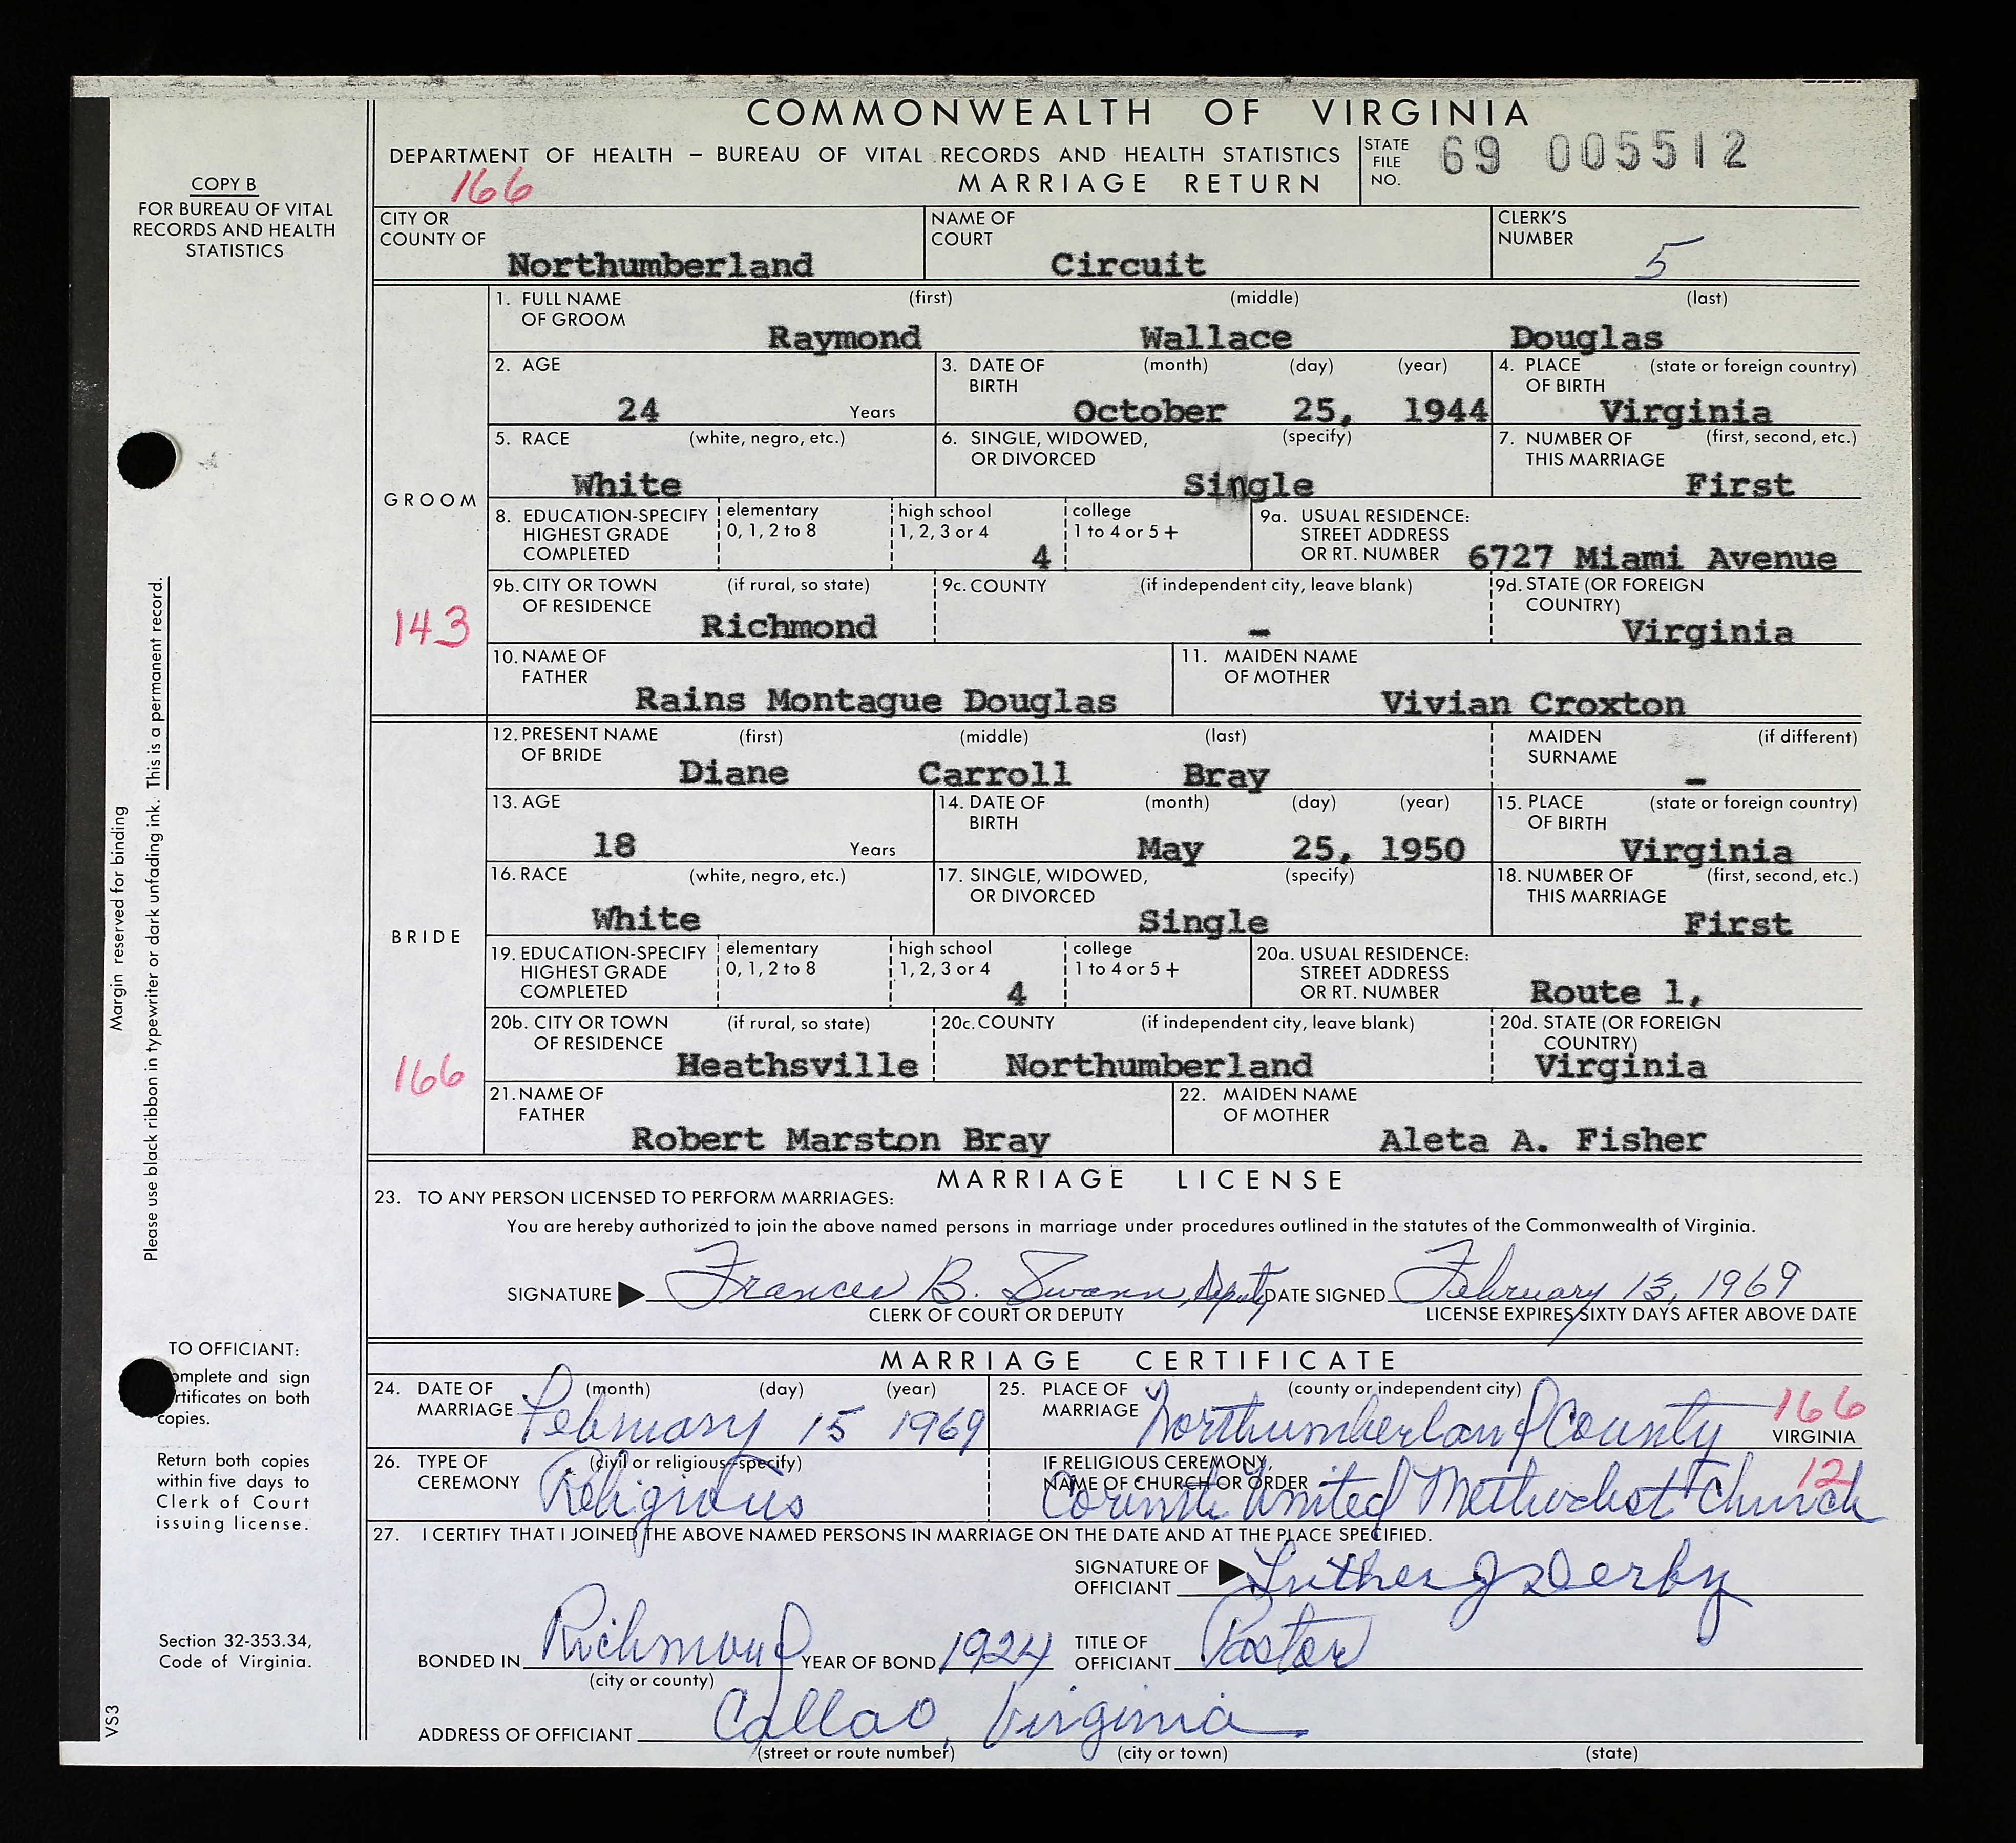 COMMONWEALTH OF VIRGINIA
DEPARTMENT OF HEALTH – BUREAU OF VITAL RECORDS AND HEALTH STATISTICS
166 MARRIAGE RETURN
STATE FILE NO. 69 005512
COPY B
FOR BUREAU OF VITAL
RECORDS AND HEALTH
STATISTICS
CITY OR COUNTY OF Northumberland
NAME OF COURT Circuit
CLERK'S NUMBER 5
GROOM
143
1. FULL NAME OF GROOM (first) Raymond (middle) Wallace (last) Douglas
2. AGE 24 Years
3. DATE OF BIRTH (month) (day) (year) October 25, 1944
4. PLACE OF BIRTH (state or foreign country) Virginia
5. RACE (white, negro, etc.) White
6. SINGLE, WIDOWED, OR DIVORCED (specify) Single
7. NUMBER OF THIS MARRIAGE (first, second, etc.) First
8. EDUCATION-SPECIFY HIGHEST GRADE COMPLETED elementary 0, 1, 2 to 8 high school 1, 2, 3 or 4 4 college 1 to 4 or 5 +
9a. USUAL RESIDENCE: STREET ADDRESS OR RT. NUMBER 6727 Miami Avenue
9b. CITY OR TOWN OF RESIDENCE (if rural, so state) Richmond
9c. COUNTY (if independent city, leave blank) –
9d. STATE (OR FOREIGN COUNTRY) Virginia
10. NAME OF FATHER Rains Montague Douglas
11. MAIDEN NAME OF MOTHER Vivian Croxton
BRIDE
166
12. PRESENT NAME OF BRIDE (first) Diane (middle) Carroll (last) Bray
MAIDEN SURNAME (if different) –
13. AGE 18 Years
14. DATE OF BIRTH (month) (day) (year) May 25, 1950
15. PLACE OF BIRTH (state or foreign country) Virginia
16. RACE (white, negro, etc.) White
17. SINGLE, WIDOWED, OR DIVORCED (specify) Single
18. NUMBER OF THIS MARRIAGE (first, second, etc.) First
19. EDUCATION-SPECIFY HIGHEST GRADE COMPLETED elementary 0, 1, 2 to 8 high school 1, 2, 3 or 4 4 college 1 to 4 or 5 +
20a. USUAL RESIDENCE: STREET ADDRESS OR RT. NUMBER Route 1,
20b. CITY OR TOWN OF RESIDENCE (if rural, so state) Heathsville
20c. COUNTY (if independent city, leave blank) Northumberland
20d. STATE (OR FOREIGN COUNTRY) Virginia
21. NAME OF FATHER Robert Marston Bray
22. MAIDEN NAME OF MOTHER Aleta A. Fisher
MARRIAGE LICENSE
23. TO ANY PERSON LICENSED TO PERFORM MARRIAGES:
You are hereby authorized to join the above named persons in marriage under procedures outlined in the statutes of the Commonwealth of Virginia.
SIGNATURE Frances B. Swann, Deputy DATE SIGNED February 13, 1969
CLERK OF COURT OR DEPUTY LICENSE EXPIRES SIXTY DAYS AFTER ABOVE DATE
MARRIAGE CERTIFICATE
24. DATE OF MARRIAGE (month) (day) (year) February 15 1969
25. PLACE OF MARRIAGE (county or independent city) Northumberland County 166 VIRGINIA
26. TYPE OF CEREMONY (civil or religious-specify) Religious
IF RELIGIOUS CEREMONY, NAME OF CHURCH OR ORDER Corinth United Methodist Church 12
27. I CERTIFY THAT I JOINED THE ABOVE NAMED PERSONS IN MARRIAGE ON THE DATE AND AT THE PLACE SPECIFIED.
SIGNATURE OF OFFICIANT Luther J Derby
BONDED IN Richmond YEAR OF BOND 1924 TITLE OF OFFICIANT Pastor
(city or county)
ADDRESS OF OFFICIANT Callao, Virginia
(street or route number) (city or town) (state)
Margin reserved for binding
Please use black ribbon in typewriter or dark unfading ink. This is a permanent record.
TO OFFICIANT:
omplete and sign
rtificates on both
copies.
Return both copies
within five days to
Clerk of Court
issuing license.
Section 32-353.34,
Code of Virginia.
VS3